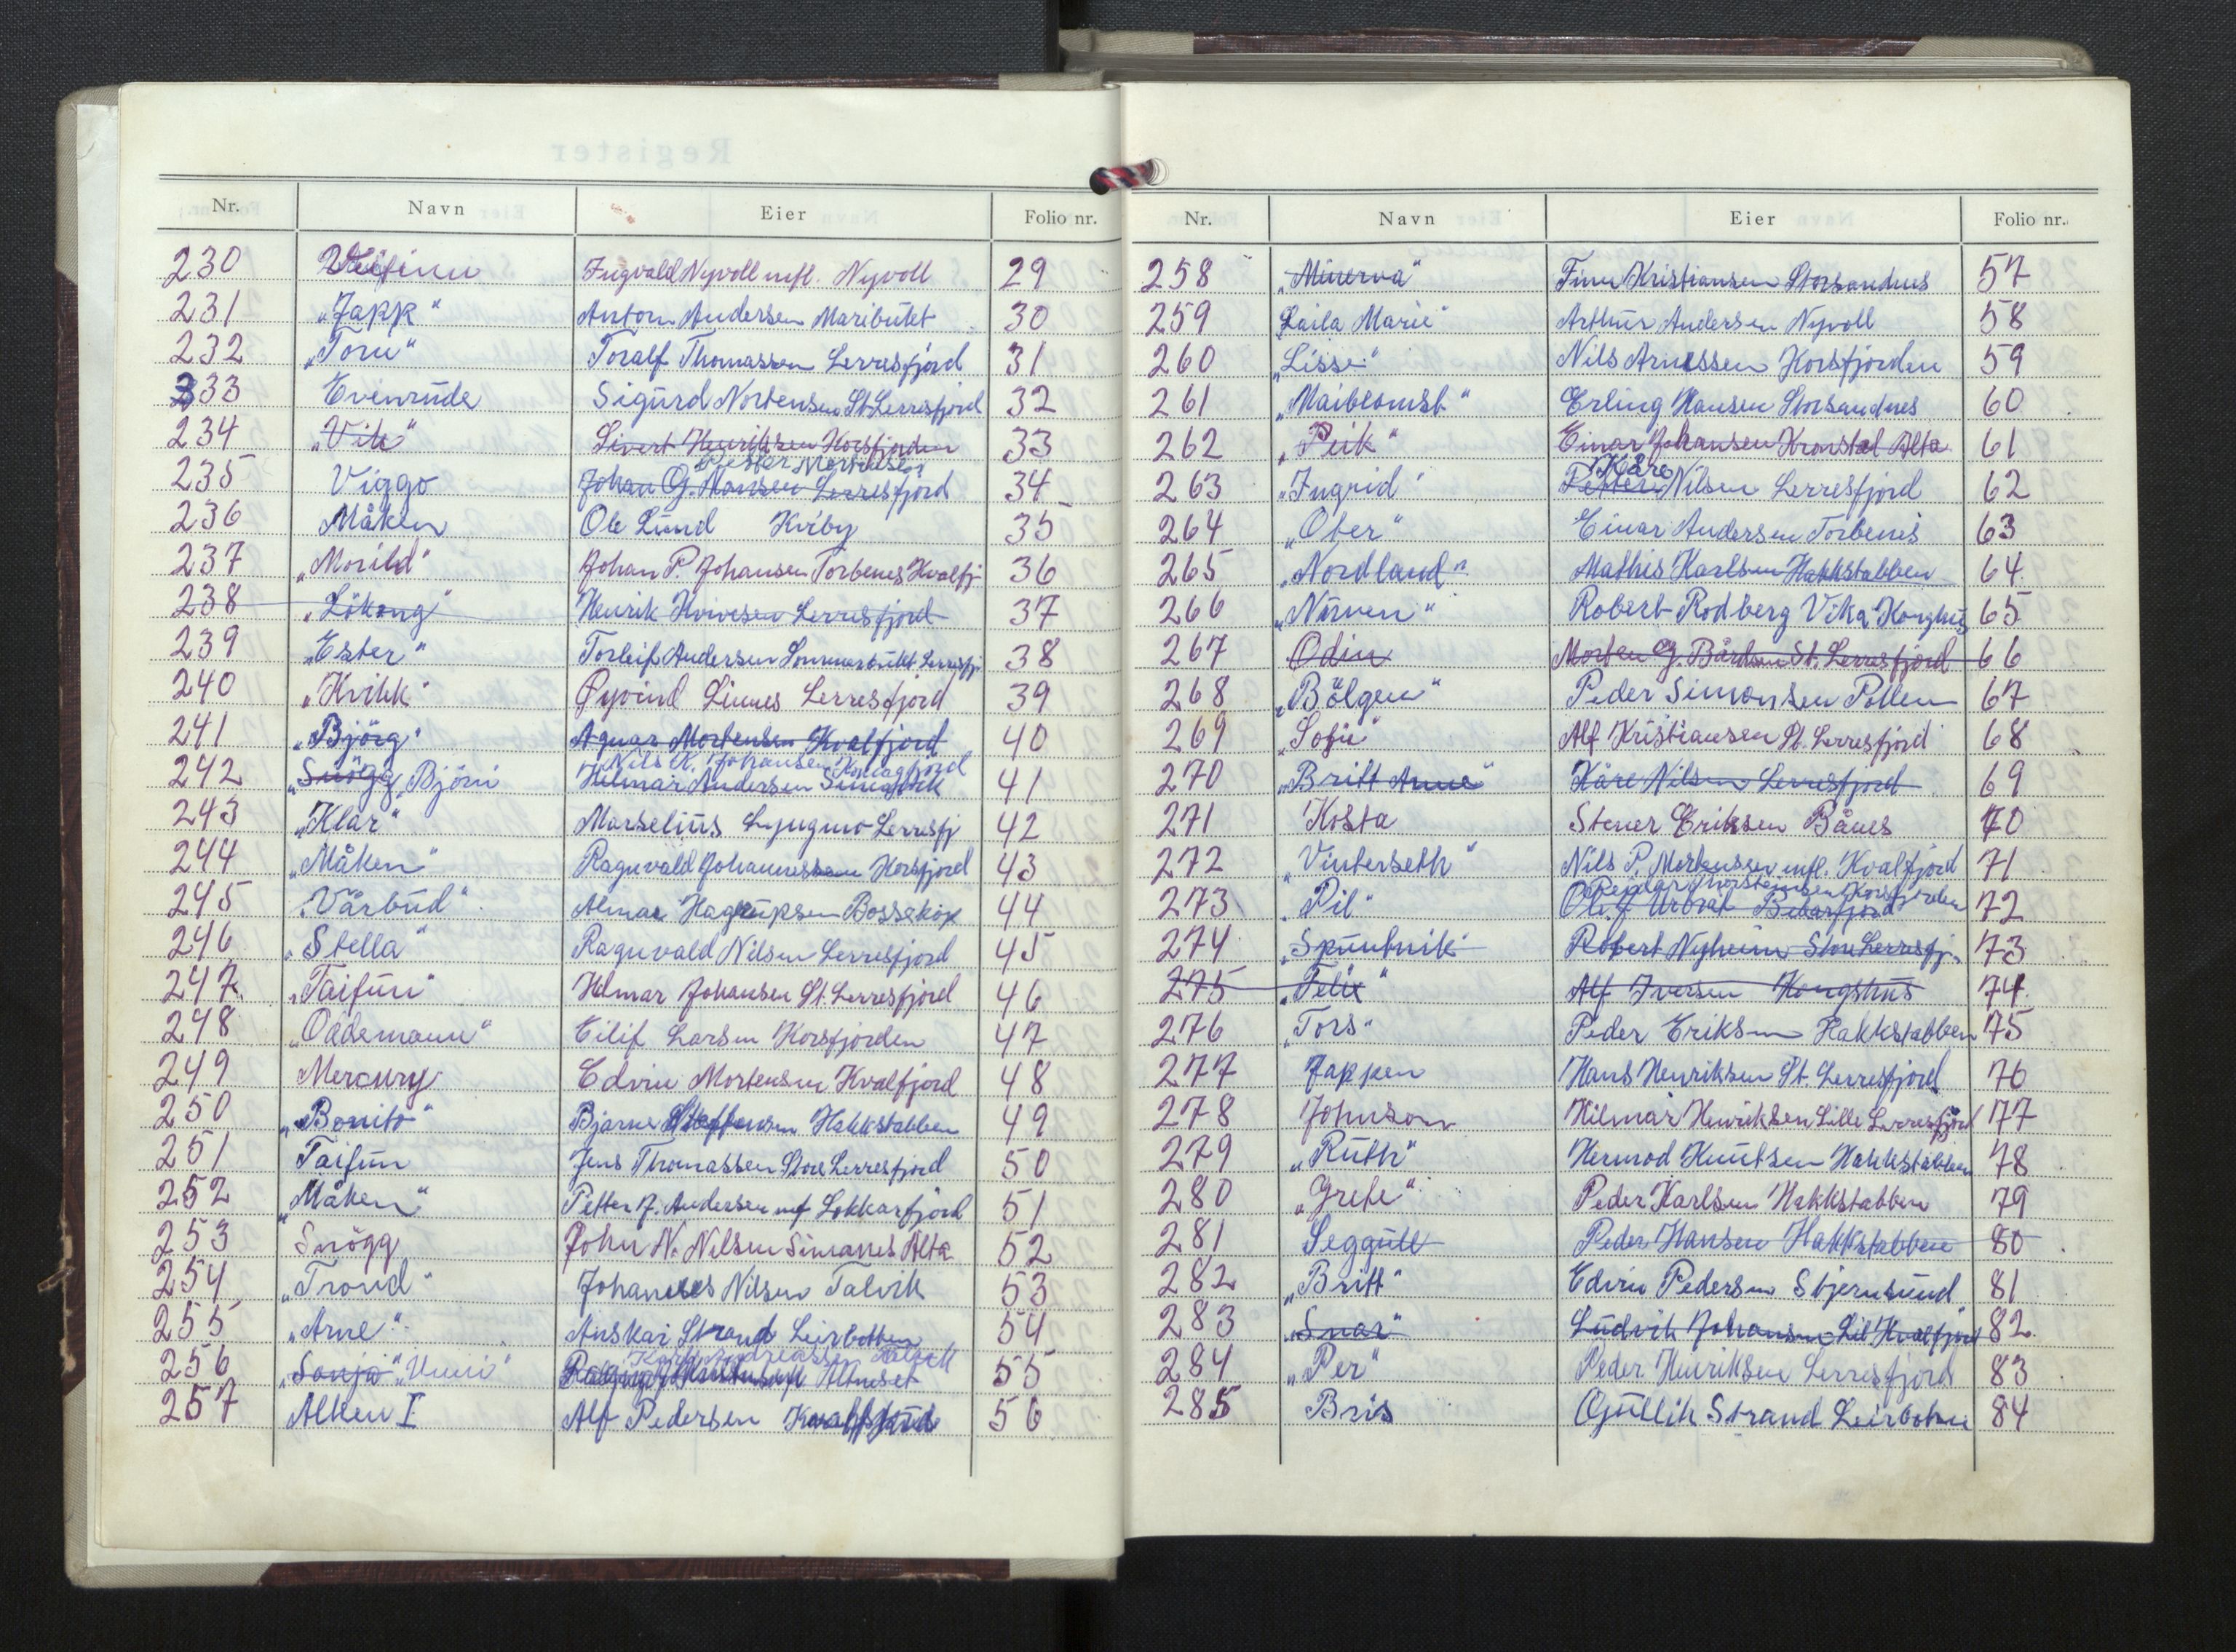 Nr. Navn Eier Folio nr.
230 Ingvald Nyvoll mfl. Nyvoll 29
231 „Japp" Anton Andersen Maribukt 30
232 „Toril" Toralf Thomassen Lerresfjord 31
333 Evinrude Sigurd Nortensen St. Lerresfjord 32
234 „Vik" Sivert Henriksen Korsfjorden 33
235 Viggo Johan G. Hansen Lerresfjord 34
236 Måken Ole Lund Kviby 35
237 „Morild" Johan P. Johansen Torbenes Kvalfj. 36
238 „Lökong" Henrik Lerresfjord 37
239 „Ester" Torleif Andersen Sommerbukt Lerresfj. 38
240 „Kvikk" Øyvind Simes Lerresfjord 39
241 „Björg" Agnar Mortensen Kvalfjord 40
Nils K. Johansen Komagfjord
242 „Snögg" Björn Hilmar Andersen 41
243 „Klar" Marselius Lyngmo Lerresfj 42
244 „Måken" Ragnvald Johannessen Korsfjord 43
245 „Vårbud" Almar Hagrupsen Bossekop 44
246 „Stella" Ragnvald Nilsen Lerresfjord 45
247 „Taifun" Hilmar Johansen St. Lerresfjord 46
248 „Oldemann" Eilif Larsen Korsfjorden 47
249 Mercury Edvin Mortensen Kvalfjord 48
250 „Bonito" Bjarne Steffensen Hakkstabben 49
251 Taifun Jens Thomassen Store Lerresfjord 50
252 „Måken" Petter J. Andersen mf Lokkarfjord 51
253 Snögg John N. Nilsen Simanes Alta 52
254 „Trond" Johannes Nilsen Talvik 53
255 „Arne" Anskar Strand Leirbotten 54
256 „Sonja" „Unni" Altneset 55
257 Alken I Alf Pedersen Kvalfjord 56
Nr. Navn Eier Folio nr.
258 „Minerva" Finn Kristiansen Storsandnes 57
259 „Laila Marie" Arthur Andersen Nyvoll 58
260 „Lisse" Nils Arnessen Korsfjorden 59
261 „Maiblomst" Erling Hansen Storsandnes 60
262 „Peik" Einar Johansen Kronstad Alta 61
Kåre
263 „Ingrid" Petter Nilsen Lerresfjord 62
264 „Oter" Einar Andersen Torbenes 63
265 „Nordland" Mathis Karlsen Hakkstabben 64
266 „Nürven" Robert Rodberg Vika Konghus 65
267 Odin Morten G. Bårdsen St. Lerresfjord 66
268 „Bölgen" Peder Simonsen Pollen 67
269 „Sofie" Alf Kristiansen St. Lerresfjord 68
270 „Britt Anne" Kåre Nilsen Lerresfjord 69
271 Kosta Stener Eriksen Bånes 70
272 „Vinterseth" Nils P. Mortensen mfl. Kvalfjord 71
Reidar Thorsteinsen Korsfjorden
273 „Pil" Bekarfjord 72
274 „Spuutnik" Robert Nyheim Store Lerresfj. 73
275 „Felix" Alf Iversen Kongshus 74
276 „Tors" Peder Eriksen Hakkstabben 75
277 Jappen Hans Henriksen St. Lerresfjord 76
278 Johnson Hilmar Henriksen Lille Lerresfjord 77
279 „Ruth" Hermod Knutsen Hakkstabben 78
280 „Grete" Peder Karlsen Hakkstabben 79
281 Seggull Peder Hansen Hakkstabben 80
282 „Britt" Edvin Pedersen Stjernsund 81
283 „Snar" Ludvik Johansen Lil Kvalfjord 82
284 „Per" Peder Henriksen Lerresfjord 83
285 Bris Gjullik Strand Leirbotn 84